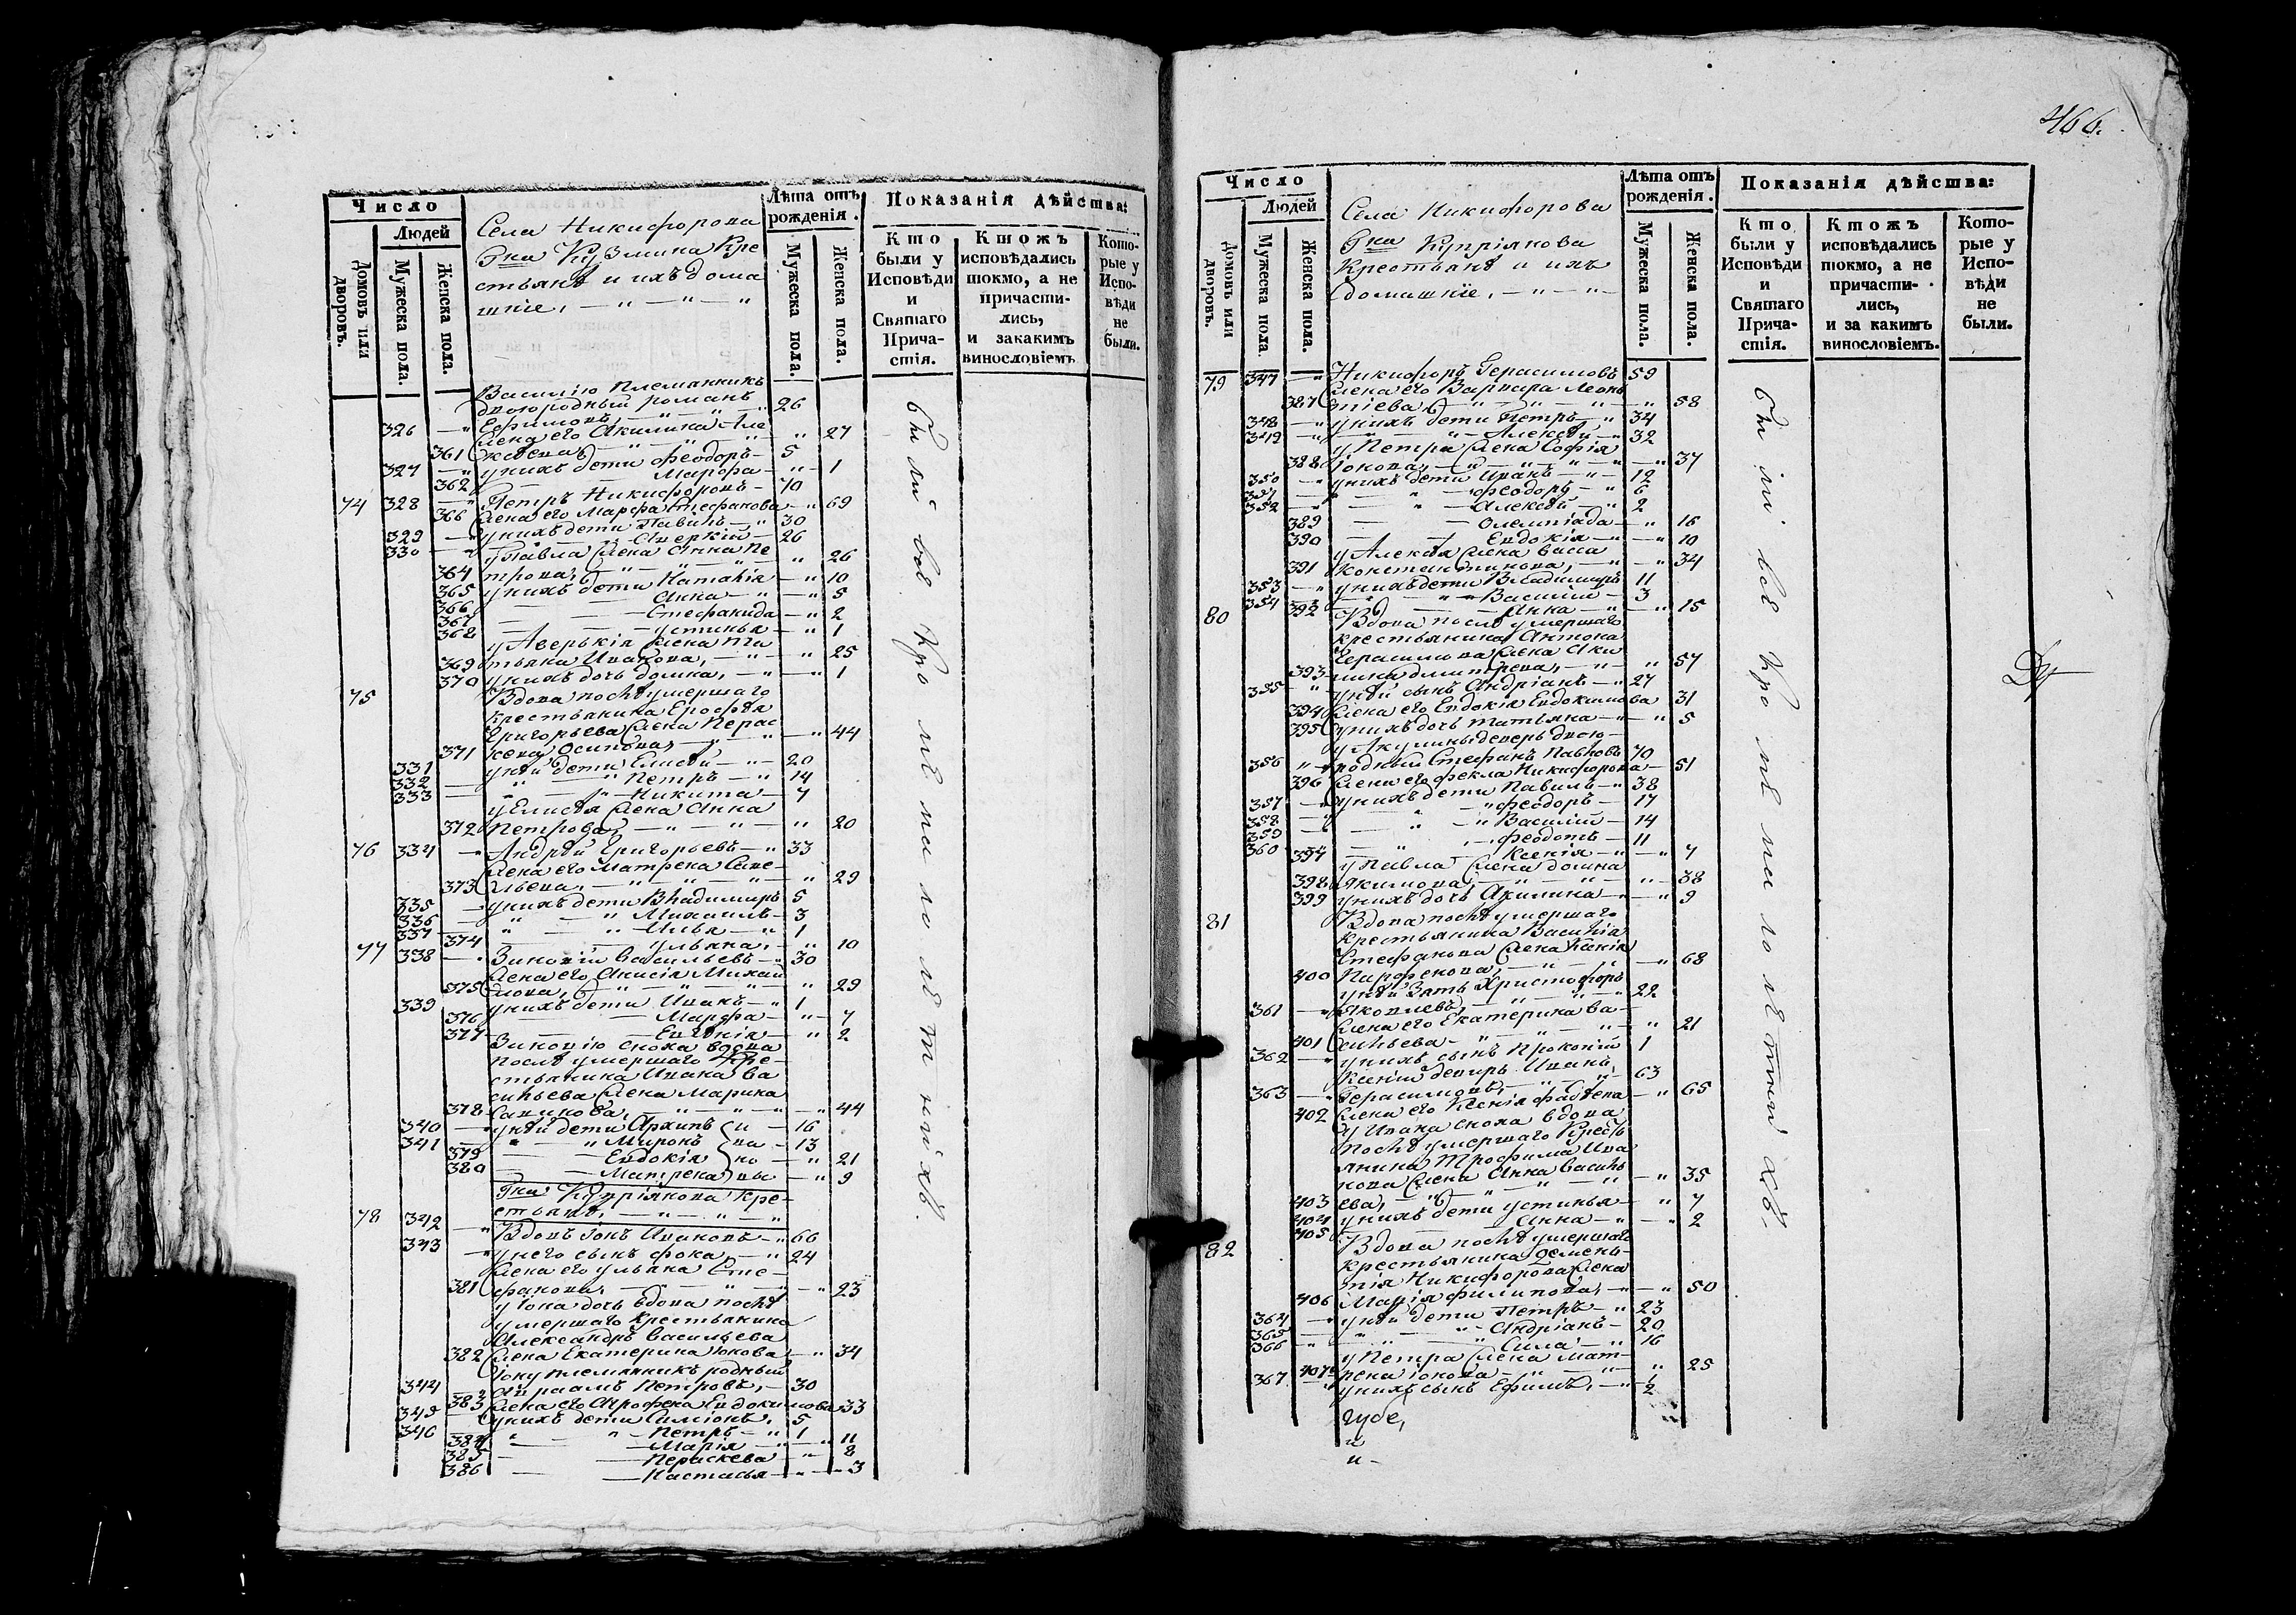 Число
Людей
Домовъ или дворовъ.
Мужеска пола.
Женска пола.
Села Никифорова
Гна Кузмина Кре
стьянѣ и ихъ дома
шніе, — „ — „ — „
Лѣта отъ рожденія.
Мужеска пола.
Женска пола.
Показанія дѣйства:
Кто были у Исповѣди и Святаго Прича-стія.
Ктожъ исповѣдались токмо, а не причасти-лись, и закакимъ винословіемъ
Кото-рые у Испо-вѣди не были.
Василію племянникъ
двоюродный романъ
326 — „ Ефимовъ, — „ — „ 26
жена его Акилина Але
361 ксѣева, — „ — „ 27
327 — „ унихъ дети Феодоръ — 5
362 — — Марфа — „ — 1
74 328 — „ Петръ Никифоровъ — 70
366 жена его Марфа Стефанова — „ 69
329 — „ унихъ дети Павилъ — „ 30
330 — „ — „ — Аверкій — 26
у Павла жена Анна Пе
364 трова, — „ — „ — „ 26
365 унихъ дети Наталія — „ 10
366 — — Анна — „ — „ 5
367 — — Стефанида — „ 2
368 — — устинья — „ 1
у Аверькія жена Та
369 тьяна Иванова, — „ — „ 25
370 унихъ дочь домна, — „ — „ 1
75 Вдова послѣ умершаго
крестьянина Ерофѣя
Григорьева жена Парас
371 кева Осипова, — „ — „ 44
331 уней дети Елисѣй — „ — 20
332 — „ — „ Петръ — „ 14
333 — „ — „ Никита — 7
у Елисѣя жена Анна
372 Петрова, — „ — „ — „ 20
76 334 — „ Андрѣй Григорьевъ — „ 33
жена его Матрена Саве
373 льева, — „ — „ — „ 29
335 — унихъ дети Владимиръ 5
336 — „ — „ Михаилъ — 3
337 — „ — „ Илья — „ 1
374 — — Ульяна, — „ 10
77 338 — „ Зиновій Васильевъ — „ 30
жена его Анисія Михай
375 лова, — „ — „ — „ 29
339 унихъ дети Иванъ — „ 1
376 — — Марфа — „ — 7
377 — — Евгенія — „ 2
Зиновію сноха вдова
послѣ умершаго Кре-
стьянина Ивана Ва
сильева жена Марина
378 Савинова, — „ — „ — „ 44
340 — „ уней дети Архипъ 16
341 — „ — „ Миронъ 13
379 — — Евдокія 21
380 — — Матрена 9
Гна Купріянова Кре-
стьянѣ, — „ — „ — „
78 342 — „ Вдовъ Іонъ Ивановъ — „ 66
343 — „ унего сынъ Фока, — „ 24
жена его ульяна Сте-
381 фанова, — „ — „ — „ 23
у Іона дочь вдова послѣ
умершаго Крестьянина
Александръ Васильева
382 жена Екатерина Іонова — „ 34
Іону племянникъ родный
344 — „ Авраамъ Петровъ, — 30
383 жена его Агрофена Евдокимова 33
345 — унихъ дети Симіонъ. 5
346 — „ — „ Петръ — „ 1
384 — — Марія — „ — „ 11
385 — — Параскева — „ 8
386 — — Настасья — „ — 3
были всѣ кромѣ малолѣтнихъ.
466.
Число
Людей
Домовъ или дворовъ.
Мужеска пола.
Женска пола.
Села Никифорова
Гна Купріянова
Крестьянѣ и ихъ
домашніе, — „ — „ —
Лѣта отъ рожденія.
Мужеска пола.
Женска пола.
Показанія дѣйства:
Кто были у Исповѣди и Святаго Прича-стія.
Ктожъ исповѣдались токмо, а не причасти-лись, и за какимъ винословіемъ.
Кото-рые у Испо-вѣди не были.
79 347 — „ Никифоръ Герасимовъ 59
жена его Варвара Леон
387 тіева, — „ — „ — „ 58
348 — „ унихъ дети Петръ — „ 34
349 — „ — „ — Алексѣй — „ 32
у Петра жена Софія
388 Іонова, — „ — „ — „ 37
350 — „ унихъ дети Иванъ — „ — 12
351 — „ — „ — Феодоръ — „ 6
352 — „ — „ — Алексѣй — „ 2
389 — — Олемпіада — „ 16
390 — — Евдокія — „ — „ 10
у Алексѣя жена Васса
391 Константинова, — „ — „ 34
353 — „ унихъ дети Владимиръ 11
354 — „ — „ Василій — 3
392 — — Анна — „ — „ 15
80 Вдова послѣ умершаго
крестьянина Антона
Герасимова жена Аки
393 лина дмитрева, — „ — „ 57
355 — „ уней сынъ Андріанъ — „ 27
394 жена его Евдокія Евдокимова 31
395 унихъ дочь татьяна — „ — „ 5
у Акулины деверь двою-
356 „ — „ родный Стефанъ Павловъ 70
396 жена его Фекла Никифорова — 51
357 — „ унихъ дети Павилъ — „ 38
358 — „ — „ Феодоръ — 17
359 — „ — „ Василій — 14
360 — „ — Феодотъ — 11
397 — „ — Ксенія — „ — „ 7
у Павла жена домна
398 Якимова, — „ — „ — „ 38
399 унихъ дочь Акилина — „ — „ 9
81 Вдова послѣ умершаго
крестьянина Василія
Стефанова жена Ксенія
400 Парфенова, — „ — „ — „ 68
уней Зять Христофоръ
361 — „ Яковлевъ, — „ — „ — „ 22
жена его Екатерина Ва-
401 сильева — „ — „ — „ 21
362 — „ унихъ сынъ Прокопій 1
Ксеніи деверь Иванъ
363 — „ Герасимовъ, — „ — „ 63
402 жена его Ксенія Фадѣева — „ 65
у Ивана сноха вдова
послѣ умершаго Кресть
янина Трофима Ива
нова жена Анна Василь
403 ева, — „ — „ — „ — „ 35
404 унихъ дети устинья — „ 7
405 — — Анна — „ — „ 2
82 Вдова послѣ умершаго
крестьянина демень-
тія Никифорова жена
406 Марія филипова, — „ — „ 50
364 — „ уней дети Петръ — „ 23
365 — „ — „ Андріанъ — 20
366 — „ — „ Сила — „ 16
у Петра жена Мат-
407 рена іонова — „ — „ 25
367 — „ унихъ сынъ Ефимъ, — „ 2
были всѣ кромѣ малолѣтнихъ.